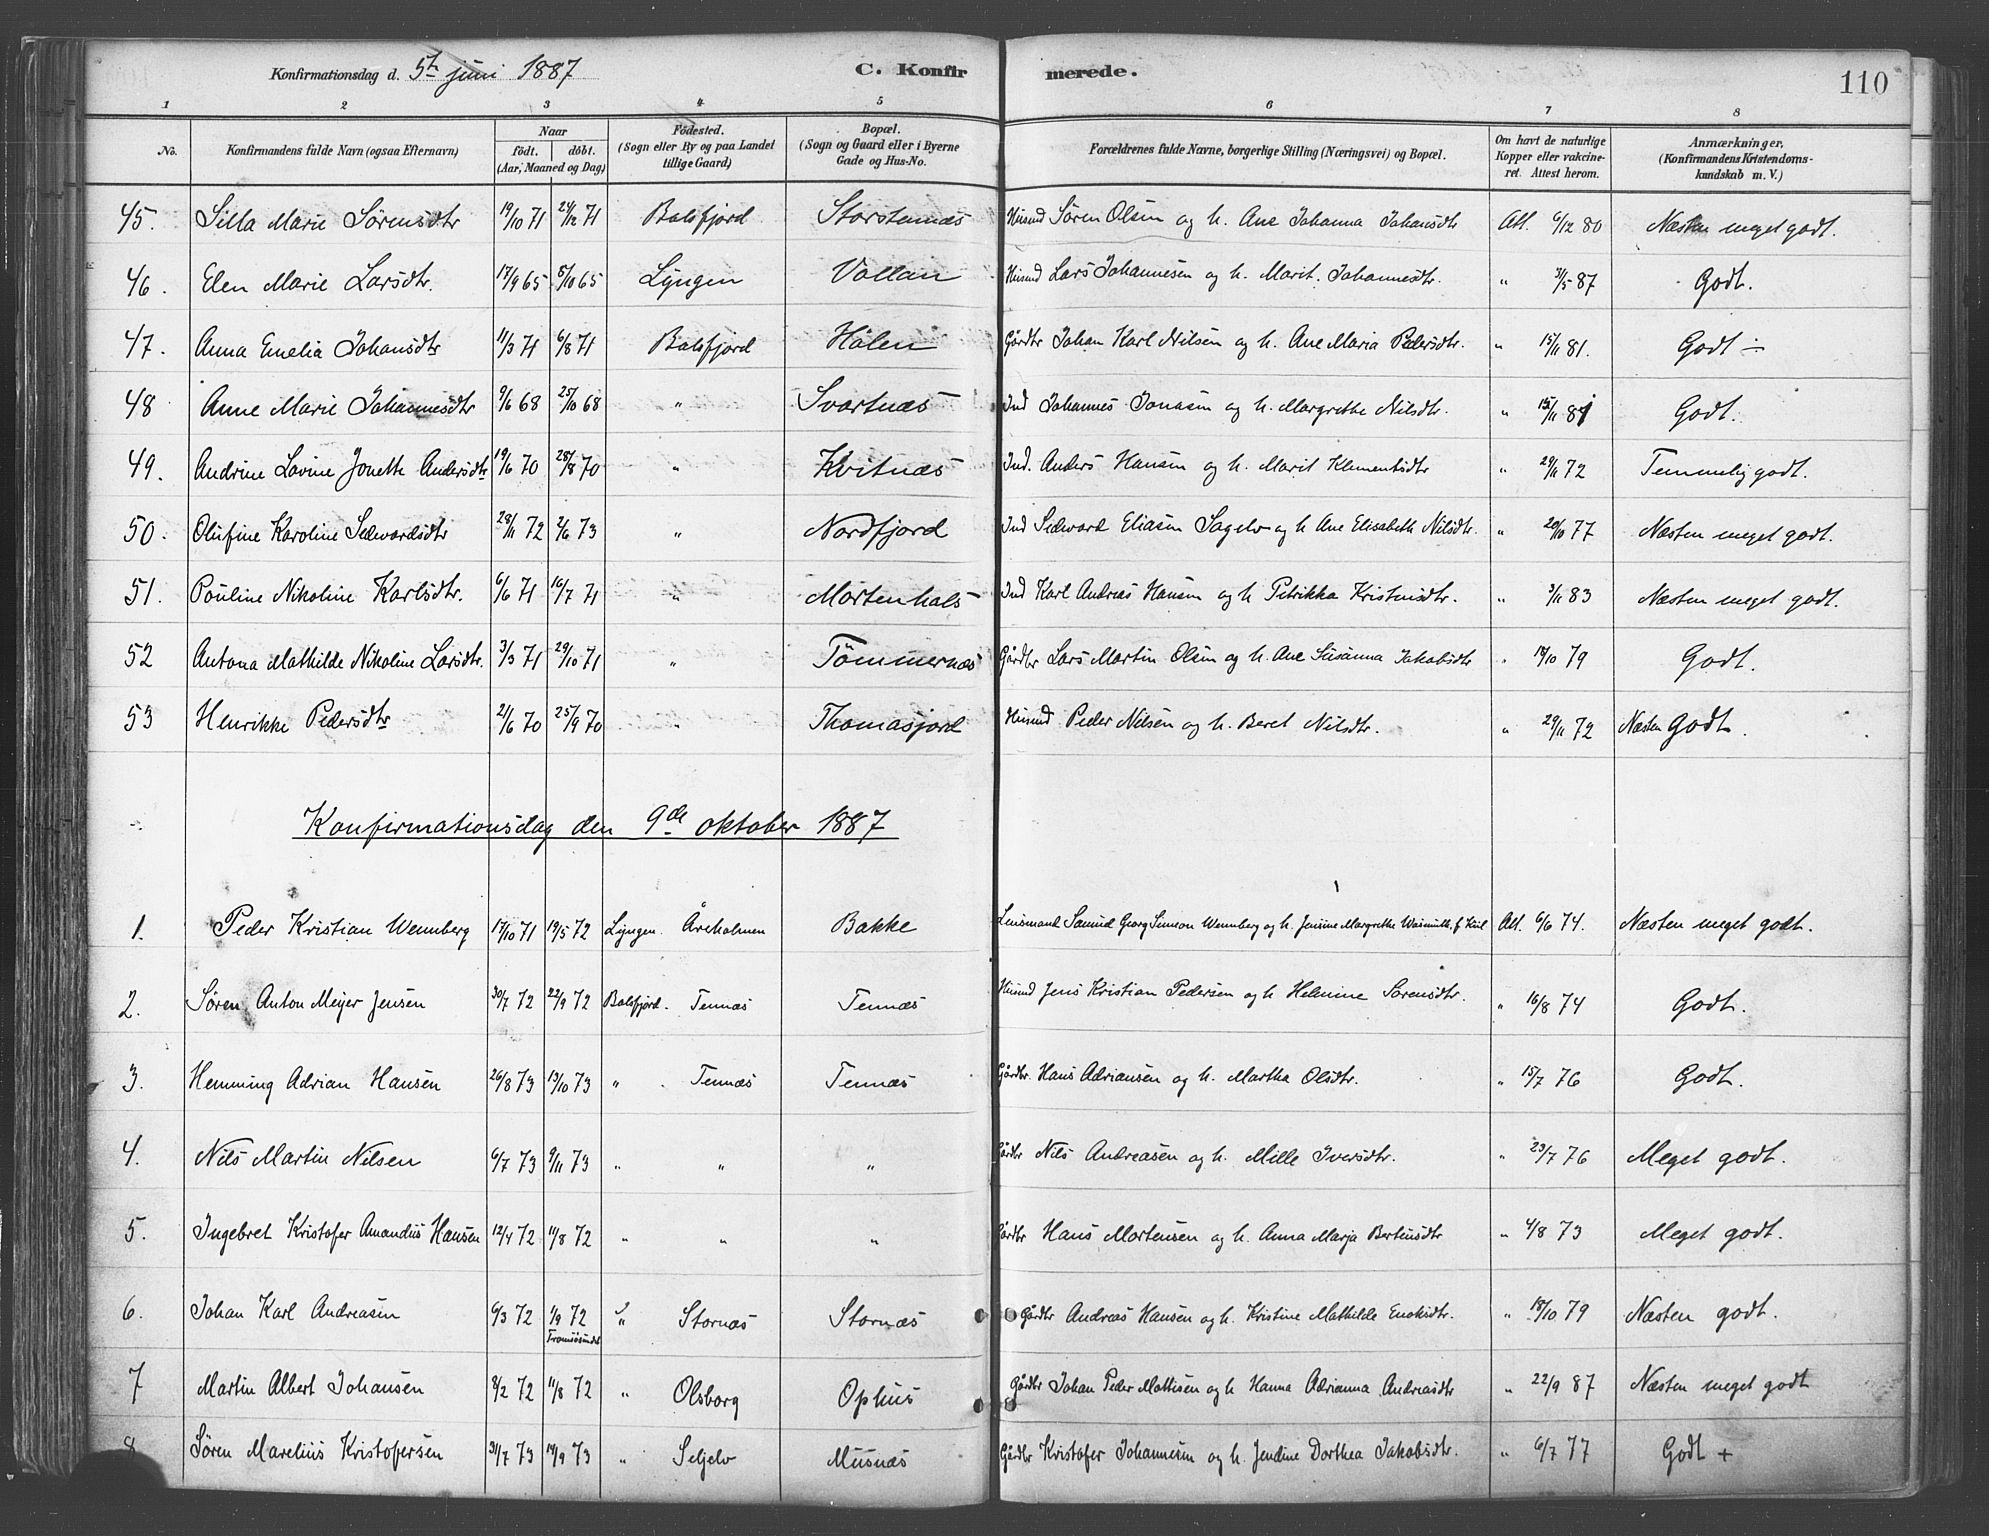 Konfirmationsdag d. 5te juni 1887 C. Konfirmerede. 110
1 2 3 4 5 6 7 8
No. Konfirmandens fulde Navn (ogsaa Efternavn) Naar født. døbt. (Aar, Maaned og Dag) Fødested. (Sogn eller By og paa Landet tillige Gaard) Bopæl. (Sogn og Gaard eller i Byerne Gade og Hus-No. Forældrenes fulde Navne, borgerlige Stilling (Næringsvei) og Bopæl. Om havt de naturlige Kopper eller vakcineret. Attest herom. Anmærkninger, (Konfirmandens Kristendomskundskab m. V.)
45. Silla Marie Sørensdtr 19/10 71 24/12 71 Balsfjord Storstennæs Husmd Søren Olsen og h. Ane Johanna Johansdtr Att. 6/12 80 Næsten meget godt.
46. Elen Marie Larsdtr. 17/9 65 8/10 65 Lyngen Vollan Husmd Lars Johannesen og h. Marit Johannesdtr. " 31/5 87 Godt.
47. Anna Emelia Johansdtr 11/3 71 6/8 71 Balsfjord Hølen Gårdbr Johan Karl Nilsen og h. Ane Maria Pedersdtr. " 15/11 81. Godt ÷
48 Anne Marie Johannesdtr 9/6 68 25/10 68 " Svartnæs Ind Johannes Jonasen og h. Margrethe Nilsdtr. " 15/11 81 Godt.
49. Andrine Lovine Jonette Andersdtr 19/6 70 28/8 70 " Kvitnæs Ind. Anders Hansen og h. Marit Klementsdtr " 29/11 72 Temmelig godt.
50. Olufine Karoline Sedvardsdtr 28/11 72 2/6 73 " Nordfjord Ind Sedvard Eliasen Sagelv og h Ane Elisabeth Nilsdtr. " 20/10 77 Næsten meget godt.
51. Pouline Nikoline Karlsdtr. 6/6 71 16/7 71 " Mortenhals Ind Karl Andreas Hansen og h Petrikka Kristensdtr. " 3/11 83 Næsten meget godt.
52 Antona Mathilde Nikoline Larsdtr. 3/3 71 29/10 71 " Tømmernæs Gårdbr Lars Martin Olsen og h. Ane Susanna Jakobsdtr " 18/10 79 Godt.
53 Henrikke Pedersdtr 21/6 70 25/9 70 " Thomasjord Husmd Peder Nilsen og h. Beret Nilsdtr. " 29/11 72 Næsten Godt.
Konfirmationsdag den 9de oktober 1887
1. Peder Kristian Wennberg 17/10 71 19/5 72 Lyngen. Årøholmen Bakke Lensmand Samuel Georg Simeon Wennberg og h. Jensine Margrethe Wasmuth f. Kiil Att. 6/6 74. Næsten meget godt.
2. Søren Anton Meyer Jensen 30/7 72 22/9 72 Balsfjord. Tennæs Tennæs Husmd Jens Kristian Pedersen og h Helmine Sørensdtr. " 16/8 74 Godt.
3. Hemming Adrian Hansen 26/8 73 13/10 73 " Tennæs Tennæs Gårdbr. Hans Adriansen og h. Martha Olsdtr. " 15/7 76 Godt.
4. Nils Martin Nilsen 6/7 73 9/11 73 " " " Gårdbr Nils Andreasen og h. Mille Iversdtr. " 23/7 76 Meget godt.
5. Ingebret Kristofer Amandus Hansen 12/4 72 11/8 72 " " " Gårdbr Hans Mortensen og h. Anna Marja Bertinsdtr " 4/8 73 Meget godt.
6. Johan Karl Andreasen 6/3 72 1/9 72 Tromsøsundet " Stornæs Stornæs Gårdbr Andreas Hansen og h. Kristine Mathilde Enoksdtr. " 18/10 79 Næsten godt.
7 Martin Albert Johansen 8/2 72 11/8 72 " Olsborg Ophus Gårdbr Johan Peder Mattisen og h Hanna Adrianna Andreasdtr " 22/9 87 Næsten meget godt
8 Søren Marelius Kristofersen 31/7 73 14/9 73 " Seljelv Musnæs Gårdbr Kristofer Johannesen og h. Jendine Dorthea Jakobsdtr. " 6/7 77 Godt +